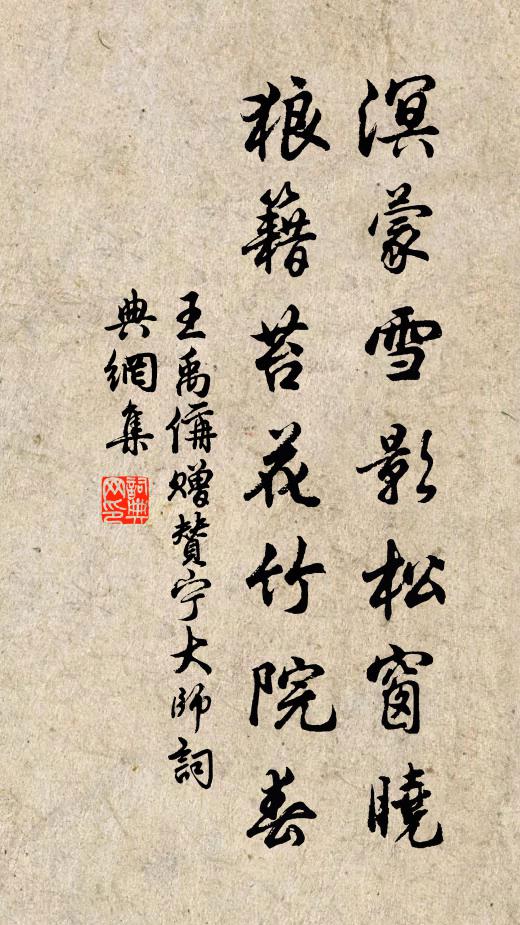 溟蒙雪影松窗曉
狼籍苔花竹院春
王禹偁贈贊宁大师詞
典網集
詞典
网印